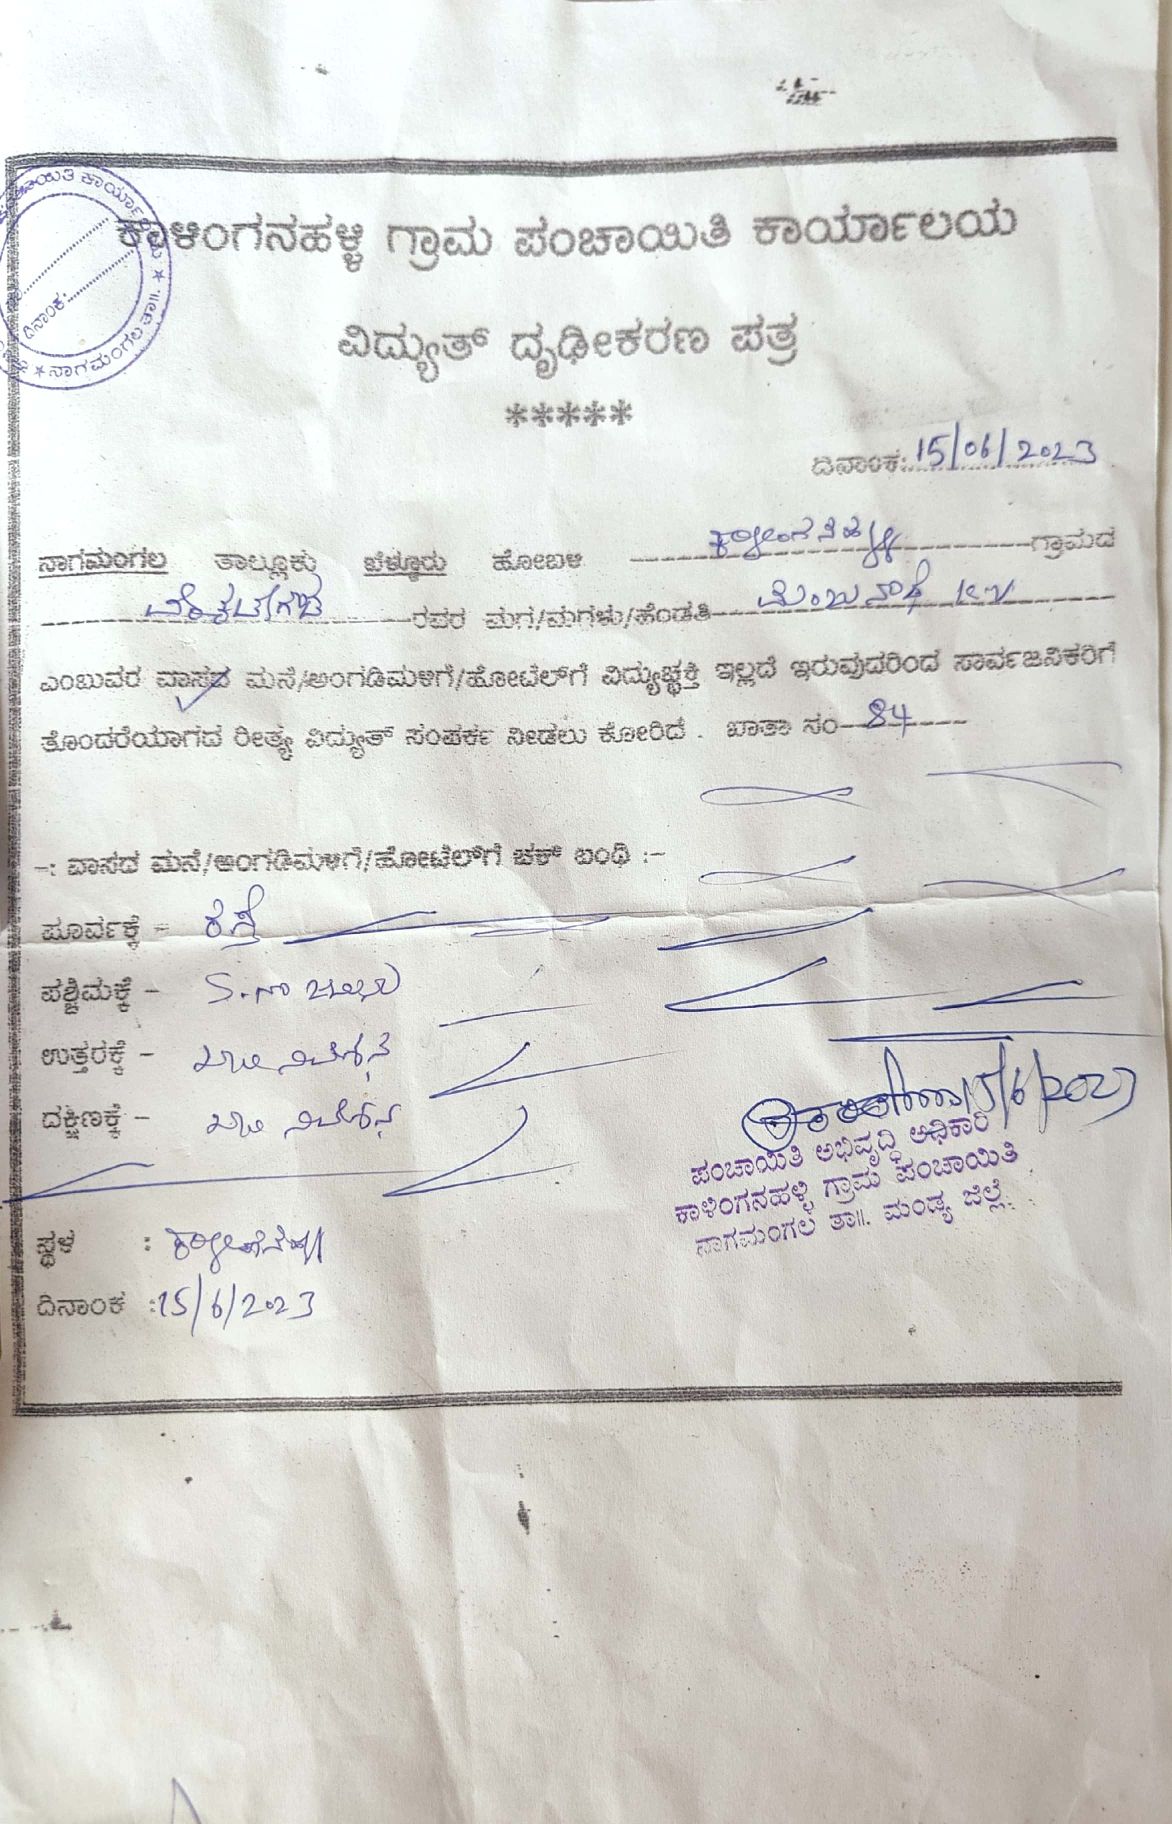 ಕಾಳಿಂಗನಹಳ್ಳಿ ಗ್ರಾಮ ಪಂಚಾಯಿತಿ ಕಾರ್ಯಾಲಯ
ವಿದ್ಯುತ್ ದೃಢೀಕರಣ ಪತ್ರ
*****
ದಿನಾಂಕ: 15/06/2023
ನಾಗಮಂಗಲ ತಾಲ್ಲೂಕು ಬೆಳ್ಳೂರು ಹೋಬಳಿ ಕಾಳಿಂಗನಹಳ್ಳಿ ಗ್ರಾಮದ
ರವರ ಮಗ/ಮಗಳು/ಹೆಂಡತಿ ಮಂಜುನಾಥ K.V
ಎಂಬುವರ ವಾಸದ ಮನೆ/ಅಂಗಡಿಮಳಿಗೆ/ಹೋಟೆಲ್‌ಗೆ ವಿದ್ಯುಚ್ಛಕ್ತಿ ಇಲ್ಲದೆ ಇರುವುದರಿಂದ ಸಾರ್ವಜನಿಕರಿಗೆ
ತೊಂದರೆಯಾಗದ ರೀತ್ಯ ವಿದ್ಯುತ್ ಸಂಪರ್ಕ ನೀಡಲು ಕೋರಿದೆ . ಖಾತಾ ನಂ 84
-: ವಾಸದ ಮನೆ/ಅಂಗಡಿಮಳಿಗೆ/ಹೋಟೆಲ್‌ಗೆ ಚಕ್ ಬಂಧಿ :-
ಪೂರ್ವಕ್ಕೆ - ರಸ್ತೆ
ಪಶ್ಚಿಮಕ್ಕೆ -
ಉತ್ತರಕ್ಕೆ - ಖಾಲಿ ನಿವೇಶನ
ದಕ್ಷಿಣಕ್ಕೆ - ಖಾಲಿ ನಿವೇಶನ
15/6/2023
ಪಂಚಾಯಿತಿ ಅಭಿವೃದ್ಧಿ ಅಧಿಕಾರಿ
ಕಾಳಿಂಗನಹಳ್ಳಿ ಗ್ರಾಮ ಪಂಚಾಯಿತಿ
ನಾಗಮಂಗಲ ತಾ||. ಮಂಡ್ಯ ಜಿಲ್ಲೆ.
ಸ್ಥಳ : ಕಾಳಿಂಗನಹಳ್ಳಿ
ದಿನಾಂಕ : 15/6/2023